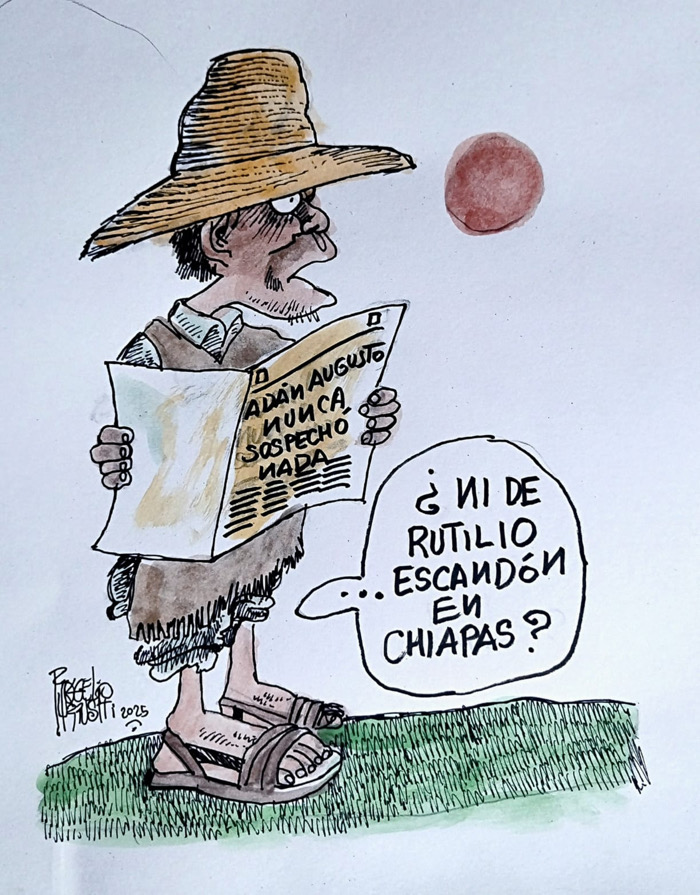 ADÁN AUGUSTO
NUNCA
SOSPECHÓ
NADA
¿NI DE
RUTILIO
...ESCANDÓN
EN
CHIAPAS?
2025